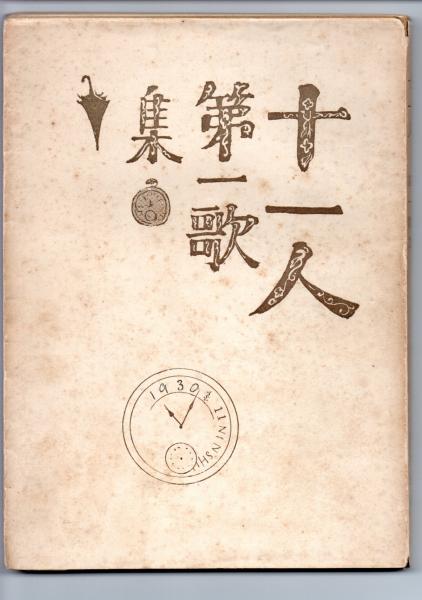 十一人
第一歌
集
1930年
11 NINSHI